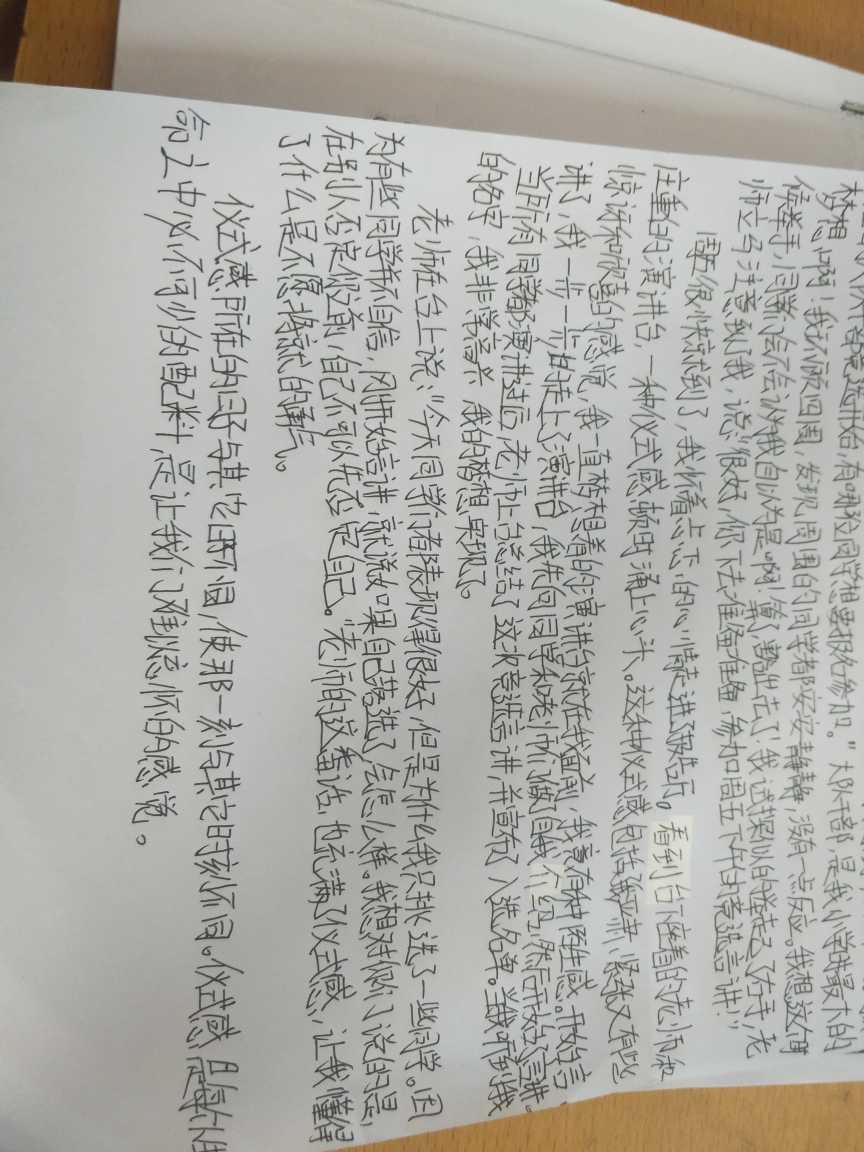 梦想啊！我环顾四周，发现周围的同学都安安静静，没有一点反应。我想这个时
候举手，同学会不会认为我自以为是啊！算了，豁出去了！我试探似的举起了右手，老
师立马注意到我，说：“很好，你下去准备准备，参加周五下午的竞选言讲！”
周五很快就到了，我怀着忐忑的心情走进了报告厅。看到台下座着的老师和
庄重的演讲台，一种仪式感顿时涌上心头。这种仪式感包括强严肃、紧张又有些
惊讶和欣喜的感觉，我一直梦想着的演讲台就在我面前，我竟有种陌生感。开始言
讲了，我一步一步地走上了演讲台，我先向同学和老师们做了自我介绍，然后开始了言讲。
当所有同学都演讲过后，老师上台总结了这次竞选言讲，并宣布了入选名单。当我听到我
的名字，我非常高兴，我的梦想实现了。
老师在台上说：“今天同学们都表现得很好，但是为什么我只挑选了一些同学。因
为有些同学并不自信，刚开始言讲，就说如果自己落选了会怎么样。我想对你们说的是，
在别人否定你之前，自己不可以先否定自己。”老师的这番话，也充满了仪式感，让我懂得
了什么是不愿将就的勇气。
仪式感所在的日子与其它日不同，使那一刻与其它时刻不同。仪式感，是每个生
命之中必不可少的配料，是让我们难以忘怀的感觉。